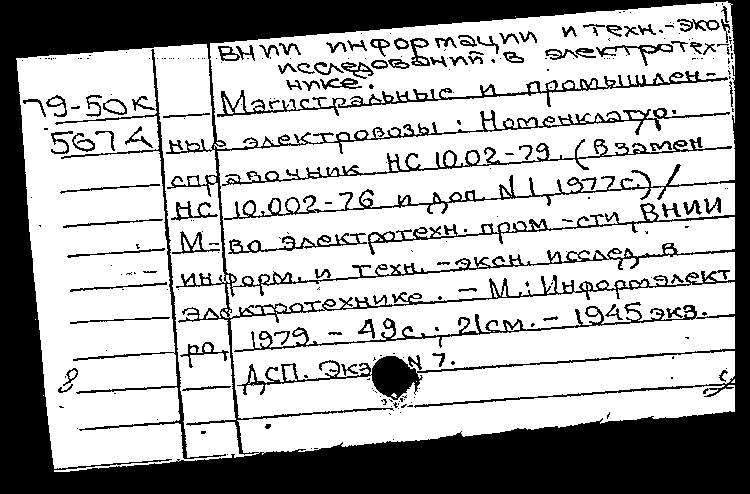 ВНИИ информации и техн.-экон
исследований. в электротех-
нике.
79-50к Магистральные и промышлен-
567А ные электровозы : Номенклатур.
справочник НС 10.02-79. (Взамен
НС 10.002-76 и доп. N 1, 1977г.) /
М-во электротехн. пром-сти, ВНИИ
информ. и техн.-экон. исслед. в
электротехнике. - М.: Информэлект
ро, 1979. - 49с.; 21см. - 1945 экз.
8 ДСП. Экз N 7.